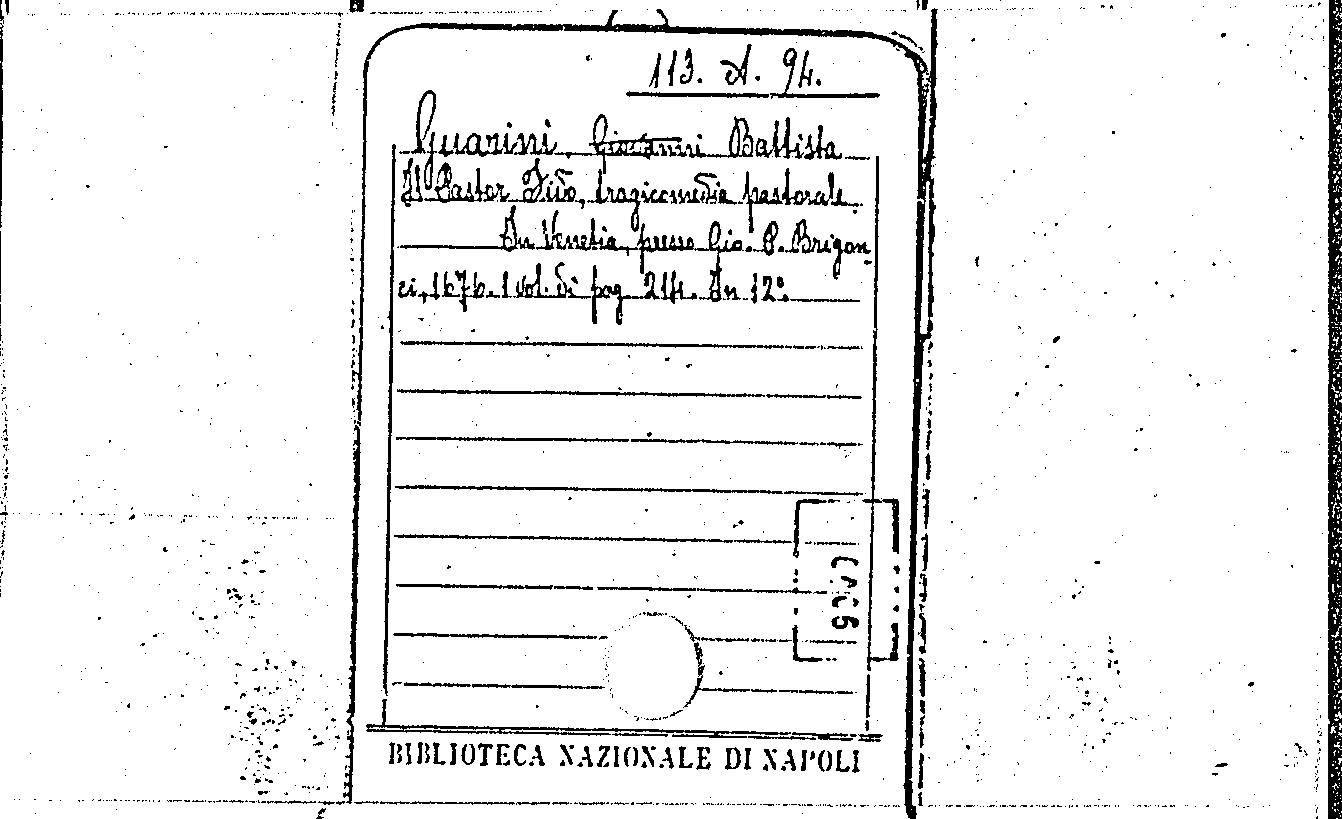 113. A. 94.
Guarini, Giovanni Battista
Il Pastor Fido, tragicomedia pastorale.
In Venetia, presso Gio. P. Brigon-
ci, 1676. 1 vol. di pag. 214. In 12°.
BIBLIOTECA NAZIONALE DI NAPOLI